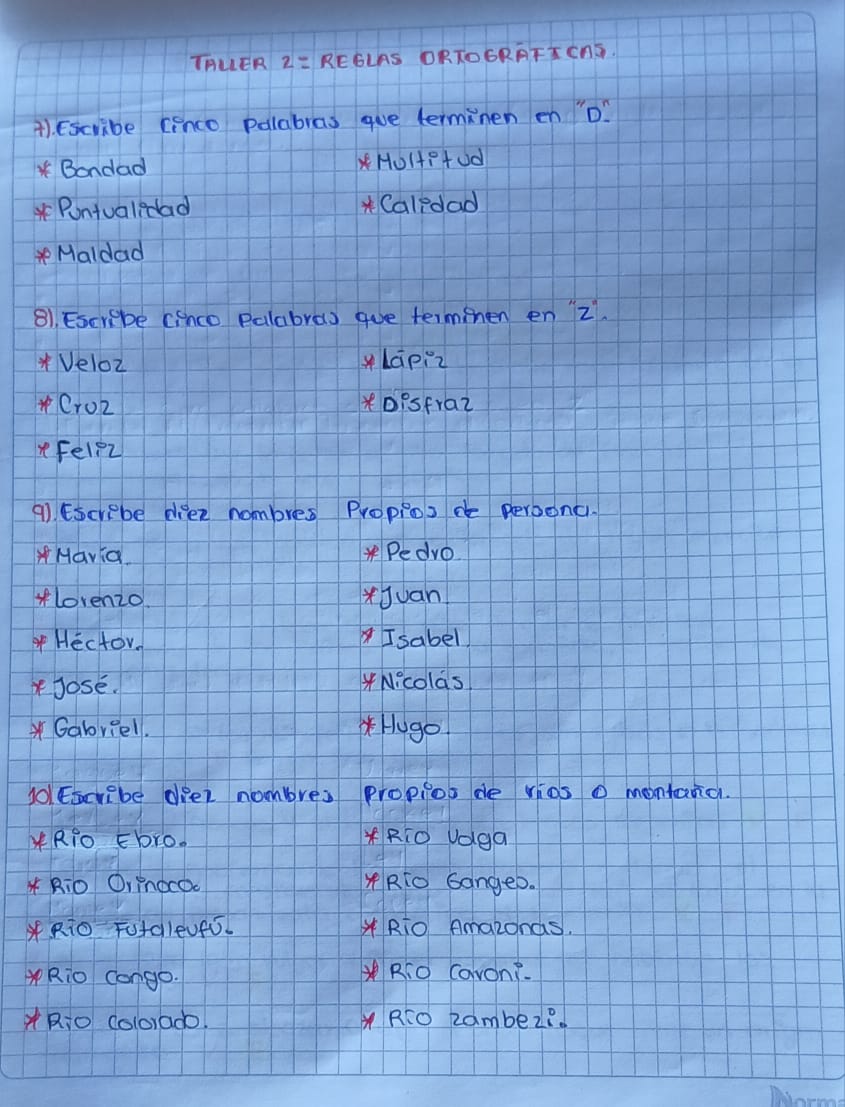 TALLER 2 = REGLAS ORTOGRÁFICAS.
7). Escribe cinco palabras que terminen en "D".
* Bondad * Multitud
* Puntualidad * Calidad
* Maldad
8). Escribe cinco palabras que terminen en "Z".
* Veloz * Lápiz
* Cruz * Disfraz
* Feliz
9). Escribe diez nombres Propios de persona.
* María. * Pedro.
* Lorenzo. * Juan.
* Héctor. * Isabel.
* José. * Nicolás.
* Gabriel. * Hugo.
10) Escribe diez nombres propios de ríos o montaña.
* Río Ebro. * Río Volga
* Río Orinoco. * Río Ganges.
* Río Futaleufú. * Río Amazonas.
* Río Congo. * Río Caroni.
* Río Colorado. * Río Zambezi.
Norma